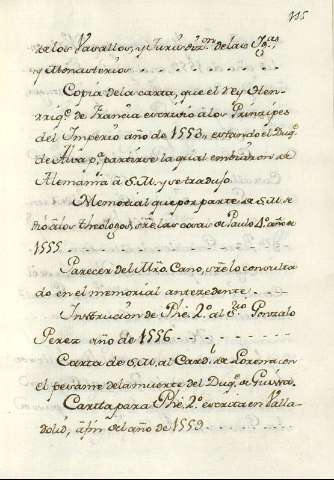 115
de los Vasallos, y Jurisdiz.on de las Ig.as,
y Monasterios
Copia de la carta, que el Rey Hen-
rriq.e de Francia escrivió à los Principes
del Imperio año de 1553,, estando el Duq.e
de Alva p.a partirse la qual embiaron de
Alemania à S.M. y se tradujo
Memorial que por parte de S.M. se
dió à los theologos, sre las cosas de Paulo 4.o año de
1555
Parecer del Mro. Cano, sre lo consulta
do en el memorial antecedente
Instruccion de Phe. 2.o al S.rio Gonzalo
Perez año de 1556
Carta de S.M. al Card.l de Lorena con
el pesame de la muerte del Duq.e de Guissa.
Carta para Phe. 2.o escrita en Valla-
dolid, à fin del año de 1559